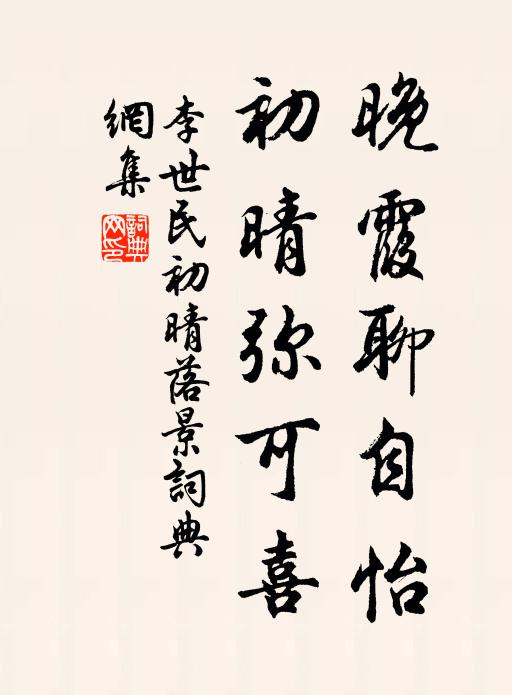 晚霞聊自怡
初晴弥可喜
李世民初晴落景詞典
網集
詞典
网印